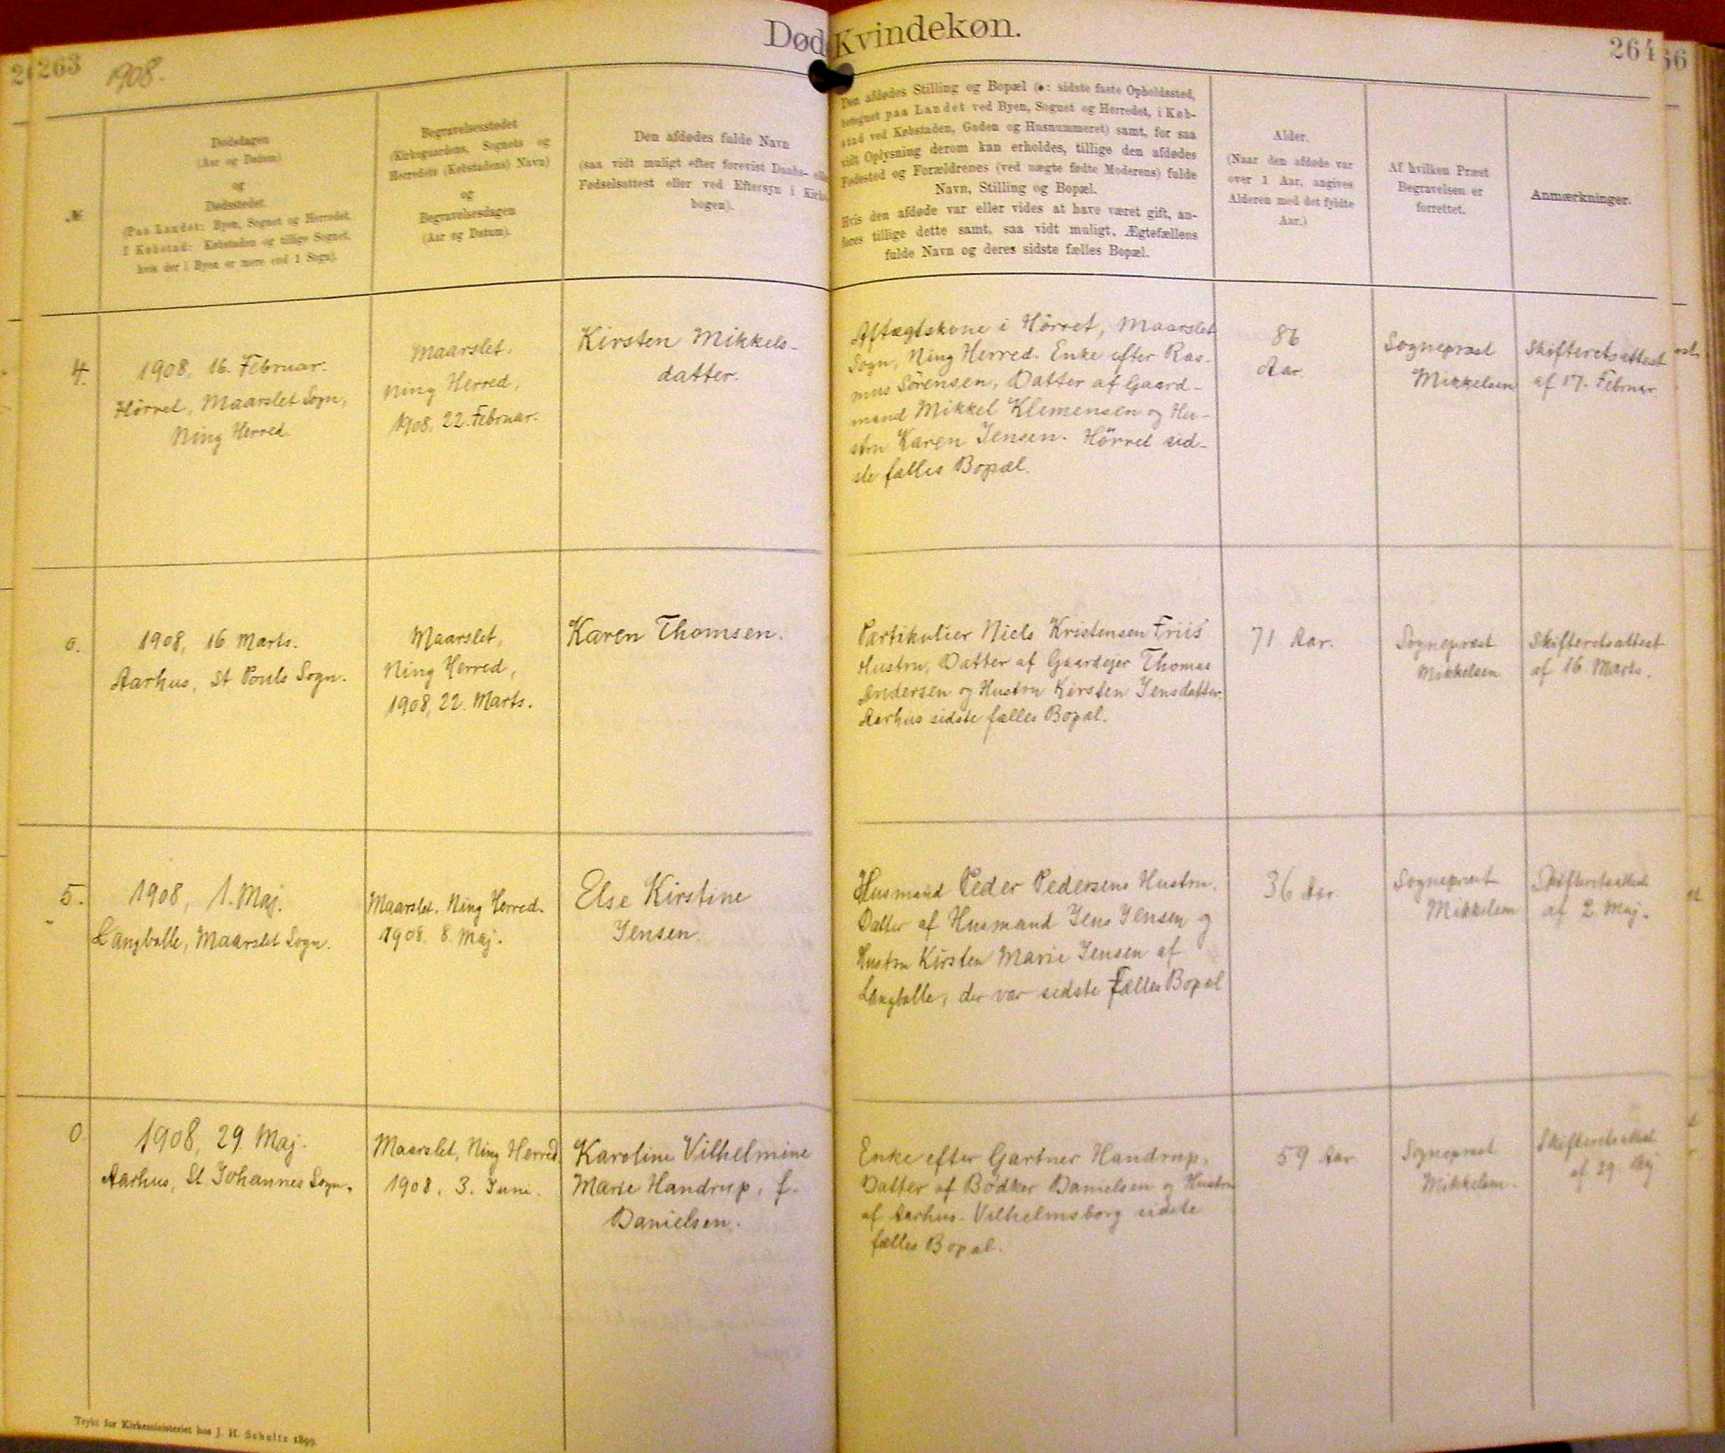 263
1908.
Død Kvindekøn.
264
66
№
Dødsdagen
(Aar og Datum)
og
Dødsstedet.
(Paa Landet: Byen, Sognet og Herredet.
I Købstad: Købstaden og tillige Sognet,
hvis der i Byen er mere end 1 Sogn).
Begravelsesstedet
(Kirkegaardens, Sognets og
Herredets (Købstadens) Navn)
og
Begravelsesdagen
(Aar og Datum).
Den afdødes fulde Navn
(saa vidt muligt efter forevist Daabs- eller
Fødselsattest eller ved Eftersyn i Kirke-
bogen).
Den afdødes Stilling og Bopæl (ɔ: sidste faste Opholdssted,
betegnet paa Landet ved Byen, Sognet og Herredet, i Køb-
stad ved Købstaden, Gaden og Husnummeret) samt, for saa
vidt Oplysning derom kan erholdes, tillige den afdødes
Fødested og Forældrenes (ved uægte fødte Moderens) fulde
Navn, Stilling og Bopæl.
Hvis den afdøde var eller vides at have været gift, an-
føres tillige dette samt, saa vidt muligt, Ægtefællens
fulde Navn og deres sidste fælles Bopæl.
Alder.
(Naar den afdøde var
over 1 Aar, angives
Alderen med det fyldte
Aar.)
Af hvilken Præst
Begravelsen er
forrettet.
Anmærkninger.
4.
1908, 16. Februar.
Hörret, Maarslet Sogn,
Ning Herred.
Maarslet.
Ning Herred,
1908, 22. Februar.
Kirsten Mikkels-
datter.
Aftægtskone i Hörret, Maarslet
Sogn, Ning Herred. Enke efter Ras-
mus Sörensen, Datter af Gaard-
mand Mikkel Klemensen og Hu-
stru Karen Jensen. Hörret sid-
ste fælles Bopæl.
86
Aar.
Sognepræst
Mikkelsen
Skifteretsattest
af 17. Februar
0.
1908, 16 Marts.
Aarhus, St Pouls Sogn.
Maarslet,
Ning Herred,
1908, 22. Marts.
Karen Thomsen.
Partikulier Niels Kristensen Friis'
Hustru, Datter af Gaardejer Thomas
Andersen og Hustru Kirsten Jensdatter.
Aarhus sidste fælles Bopæl.
71 Aar.
Sognepræst
Mikkelsen
Skifteretsattest
af 16 Marts.
5.
1908, 1. Maj.
Langballe, Maarslet Sogn.
Maarslet. Ning Herred.
1908. 8. Maj.
Else Kirstine
Jensen.
Husmand Peder Pedersens Hustru.
Datter af Husmand Jens Jensen og
Hustru Kirsten Marie Jensen af
Langballe, der var sidste Fælles Bopæl
36 Aar.
Sognepræst
Mikkelsen
Skifteretsattest
af 2. Maj.
0.
1908, 29. Maj.
Aarhus, St Johannes Sogn.
Maarslet, Ning Herred.
1908. 3. Juni.
Karoline Vilhelmine
Marie Handrup, f.
Danielsen.
Enke efter Gartner Handrup,
Datter af Bødker Danielsen og Hustru
af Aarhus. Vilhelmsborg sidste
fælles Bopæl.
59 Aar
Sognepræst
Mikkelsen.
Skifteretsattest
af 29. Maj
Trykt for Kirkeministeriet hos J. H. Schultz 1899.